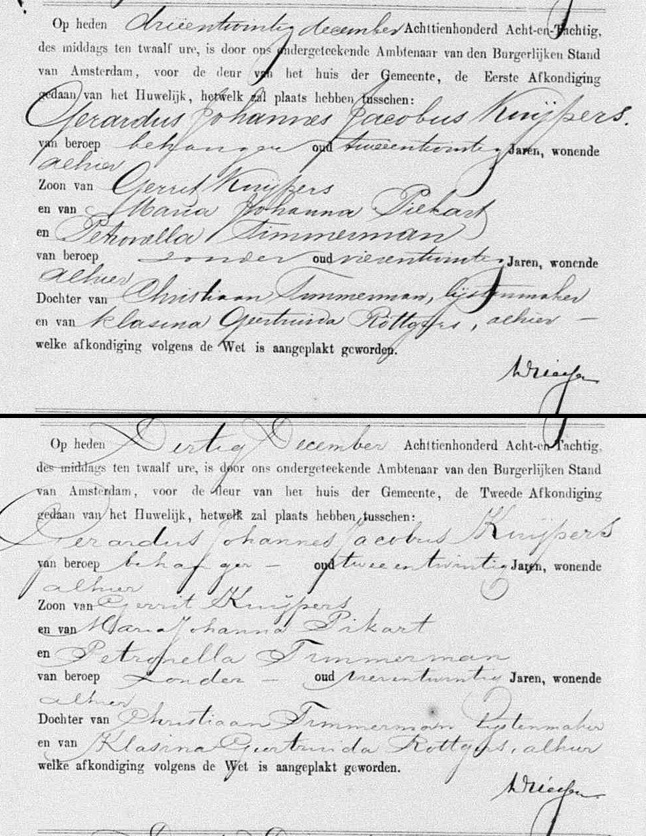 Op heden drieentwintig december Achttienhonderd Acht-en-Tachtig,
des middags ten twaalf ure, is door ons ondergeteekende Ambtenaar van den Burgerlijken Stand
van Amsterdam, voor de deur van het huis der Gemeente, de Eerste Afkondiging
gedaan van het Huwelijk, hetwelk zal plaats hebben tusschen:
Gerardus Johannes Jacobus Kuijpers.
van beroep behanger oud tweeentwintig Jaren, wonende
alhier
Zoon van Gerrit Kuijpers
en van Maria Johanna Piekart
en Petronella Timmerman
van beroep zonder oud vierentwintig Jaren, wonende
alhier
Dochter van Christiaan Timmerman, lijstenmaker
en van Klasina Geertruida Röttgers, alhier —
welke afkondiging volgens de Wet is aangeplakt geworden.
Op heden Dertig December Achttienhonderd Acht-en-Tachtig,
des middags ten twaalf ure, is door ons ondergeteekende Ambtenaar van den Burgerlijken Stand
van Amsterdam, voor de deur van het huis der Gemeente, de Tweede Afkondiging
gedaan van het Huwelijk, hetwelk zal plaats hebben tusschen:
Gerardus Johannes Jacobus Kuijpers
van beroep behanger — oud tweeentwintig Jaren, wonende
alhier
Zoon van Gerrit Kuijpers
en van Maria Johanna Pikart
en Petronella Timmerman
van beroep zonder — oud vierentwintig Jaren, wonende
alhier
Dochter van Christiaan Timmerman lijstenmaker
en van Klasina Geertruida Rottgers, alhier
welke afkondiging volgens de Wet is aangeplakt geworden.